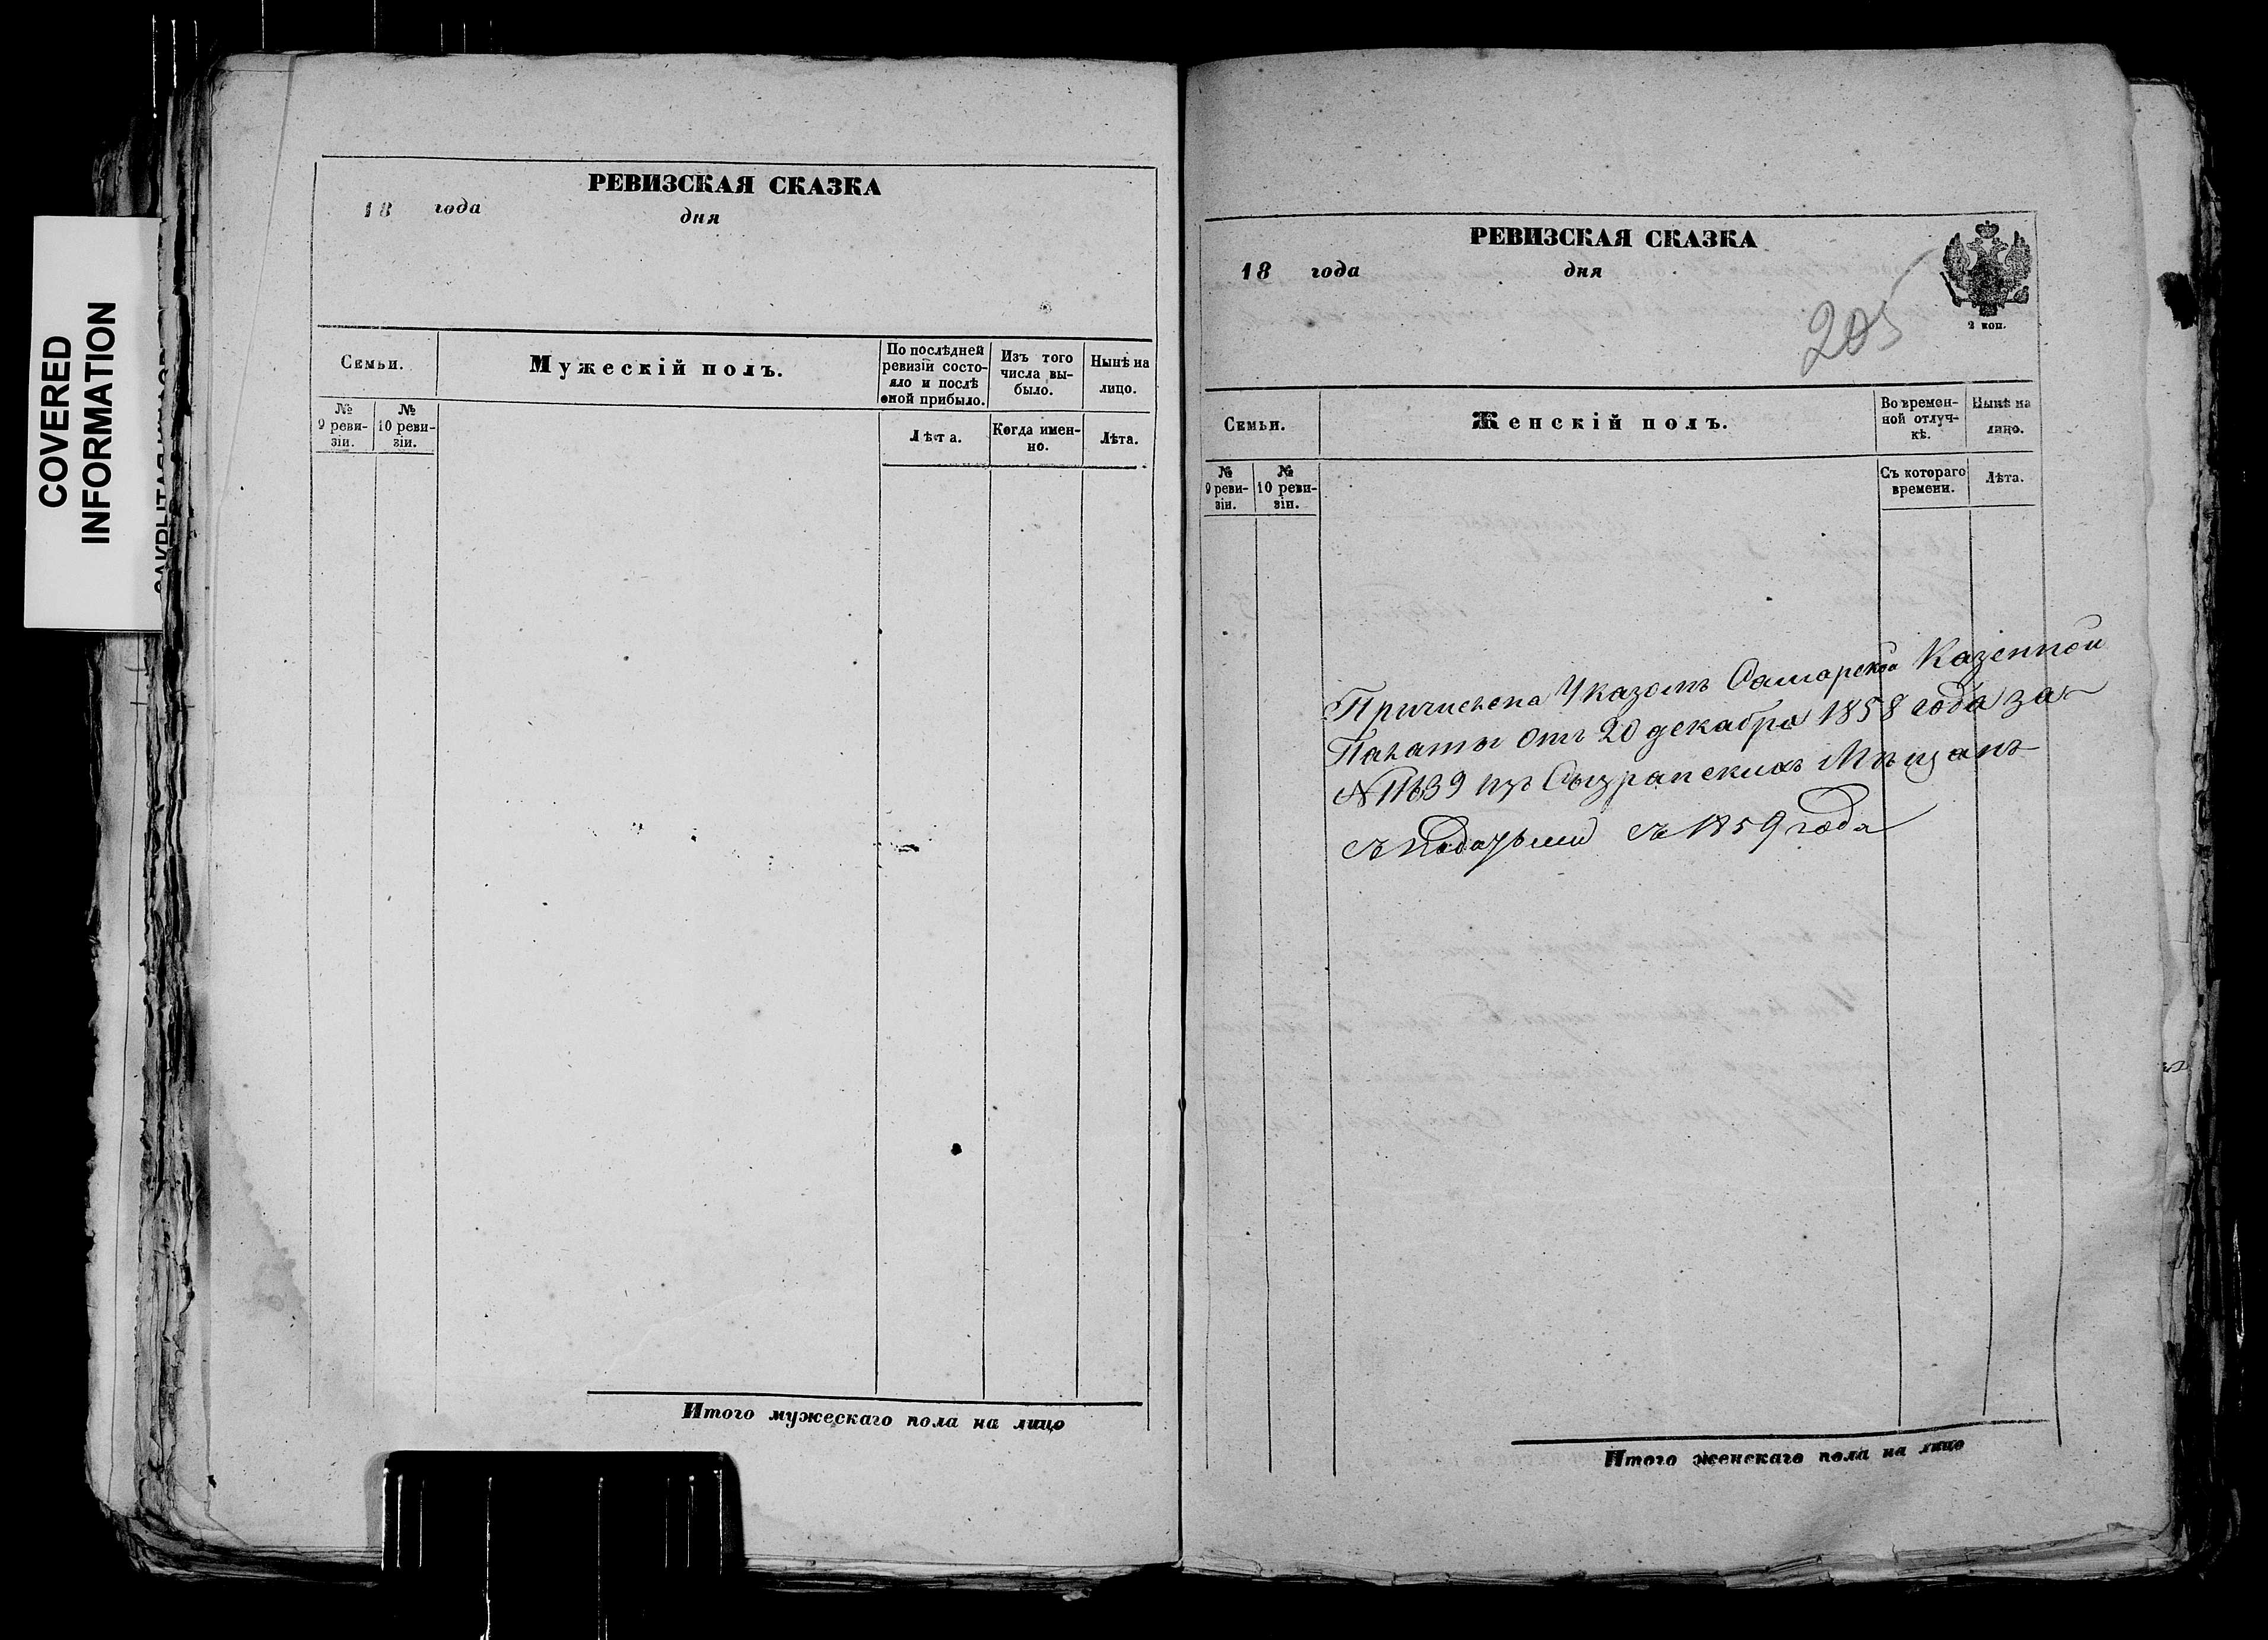 COVERED
INFORMATION
РЕВИЗСКАЯ СКАЗКА
18 года дня
Семьи.
Мужескій полъ.
По послѣдней
ревизіи состо-
яло и послѣ
оной прибыло.
Изъ того
числа вы-
было.
Нынѣ на
лицо.
№
9 реви-
зіи.
№
10 реви-
зіи.
Лѣта.
Когда имен-
но.
Лѣта.
Итого мужескаго пола на лицо
РЕВИЗСКАЯ СКАЗКА
18 года дня
205
2 коп.
Семьи.
Женскій полъ.
Во времен-
ной отлуч-
кѣ.
Нынѣ на
лицо.
№
9 реви-
зіи.
№
10 реви-
зіи.
Съ котораго
времени.
Лѣта.
Причислена Указомъ Самарской Казенной
Палаты отъ 20 декабря 1858 года за
№ 11639 изъ Сызранскихъ Мѣщанъ
съ 1859 года
Итого женскаго пола на лицо